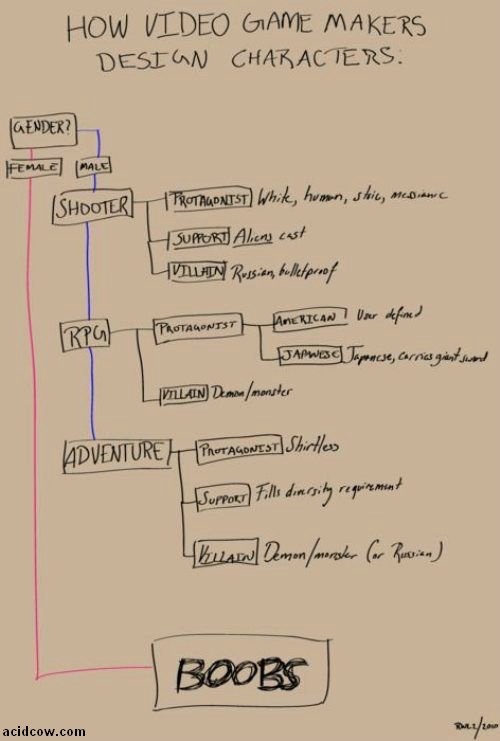 HOW VIDEO GAME MAKERS
DESIGN CHARACTERS:
GENDER?
FEMALE
MALE
SHOOTER
PROTAGONIST White, human, stoic, messianic
SUPPORT Aliens cast
VILLAIN Russian, bulletproof
RPG
PROTAGONIST
AMERICAN User defined
JAPANESE Japanese, carries giant sword
VILLAIN Demon/monster
ADVENTURE
PROTAGONIST Shirtless
SUPPORT Fills diversity requirement
VILLAIN Demon/monster (or Russian)
BOOBS
acidcow.com
/2010